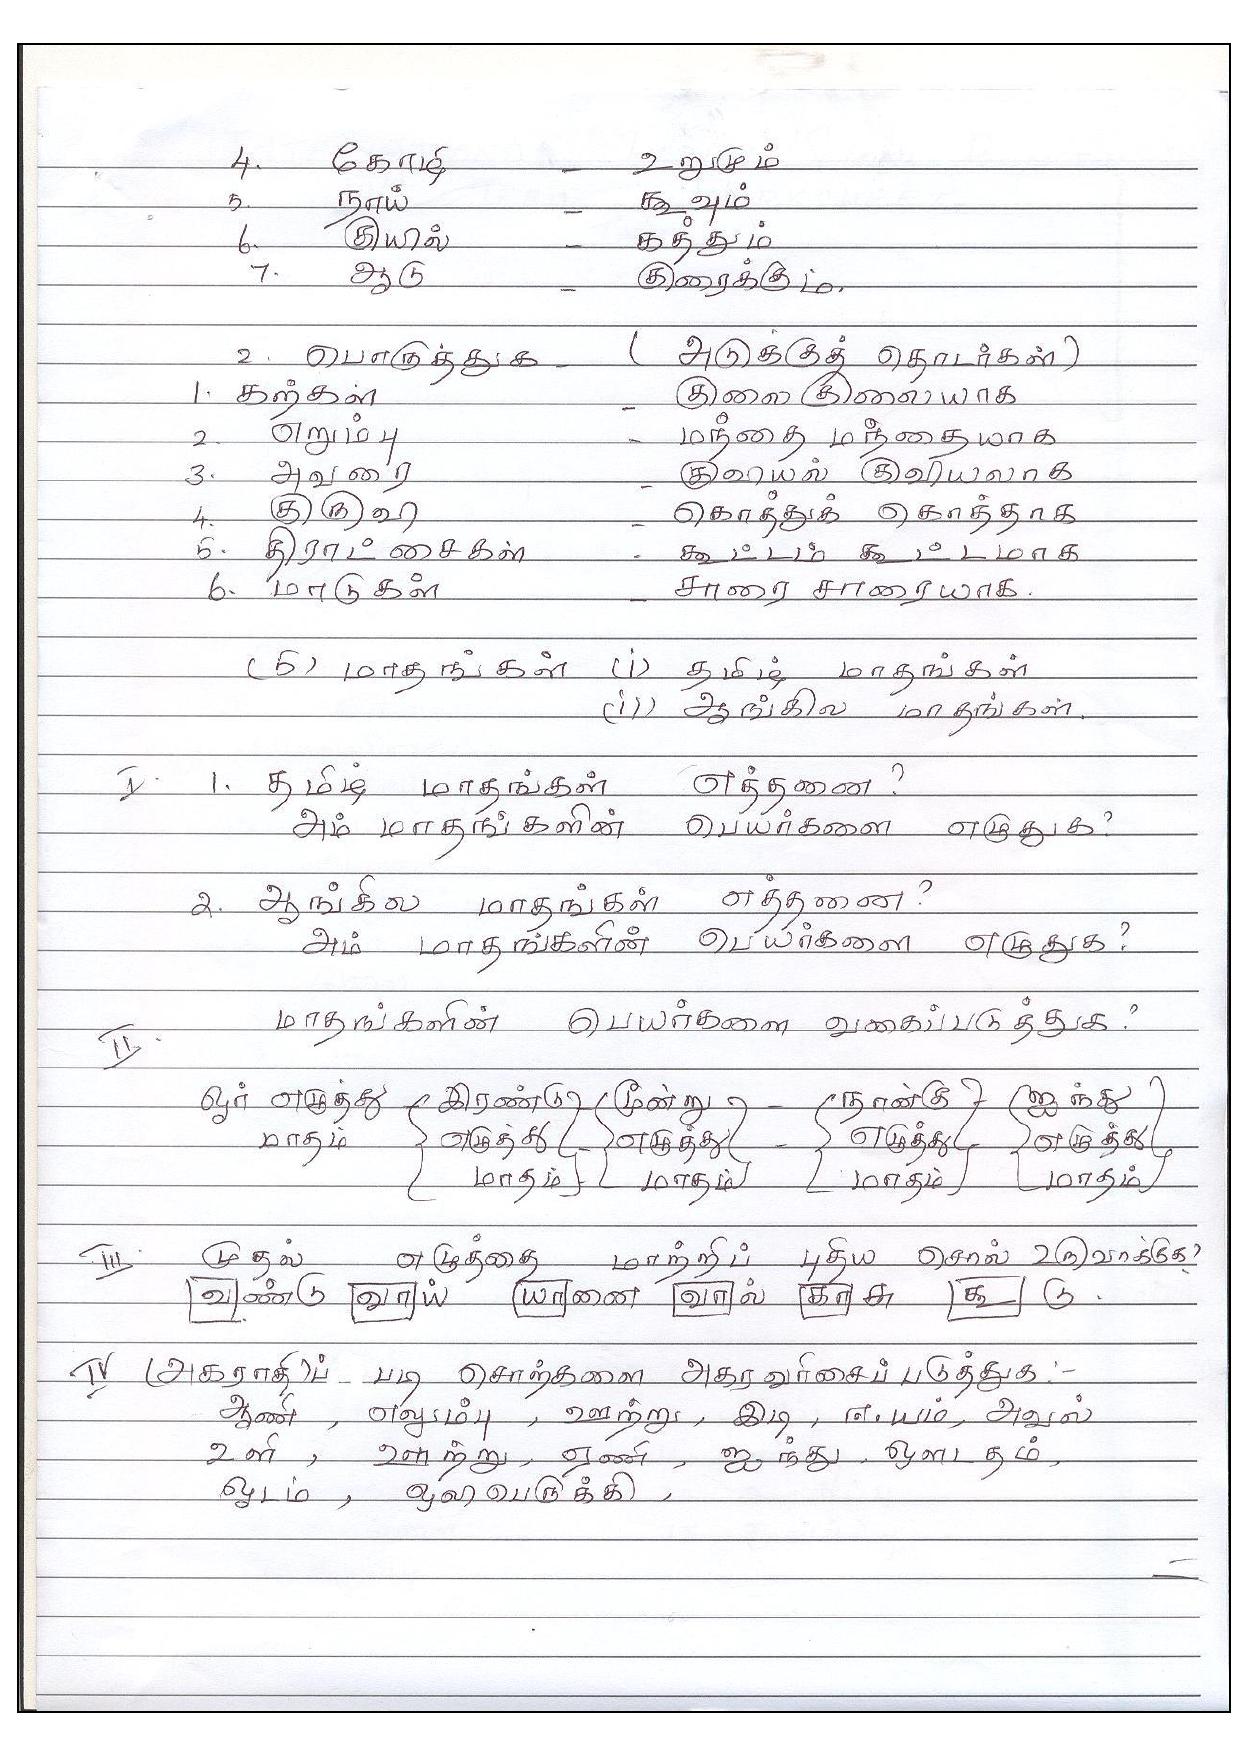 4. கோழி - உறுமும்
5. நாய் - கூவும்
6. குயில் - கத்தும்
7. ஆடு - குரைக்கும்.
2. பொருத்துக - (அடுக்குத் தொடர்கள்)
1. கற்கள் - குலை குலையாக
2. எறும்பு - மந்தை மந்தையாக
3. அவரை - குவியல் குவியலாக
4. குருவி - கொத்துக் கொத்தாக
5. திராட்சைகள் - கூட்டம் கூட்டமாக
6. மாடுகள் - சாரை சாரையாக.
(5) மாதங்கள் (i) தமிழ் மாதங்கள்
(ii) ஆங்கில மாதங்கள்.
I. 1. தமிழ் மாதங்கள் எத்தனை?
அம் மாதங்களின் பெயர்களை எழுதுக?
2. ஆங்கில மாதங்கள் எத்தனை?
அம் மாதங்களின் பெயர்களை எழுதுக?
II. மாதங்களின் பெயர்களை வகைப்படுத்துக?
ஓர் எழுத்து (இரண்டு) (மூன்று) - (நான்கு) (ஐந்து)
மாதம் எழுத்து - எழுத்து - எழுத்து - எழுத்து
மாதம் மாதம் மாதம் மாதம்
III. முதல் எழுத்தை மாற்றிப் புதிய சொல் உருவாக்குக?
வண்டு வாய் யானை வால் காசு கூடு.
IV (அகராதி)ப் படி சொற்களை அகரவரிசைப் படுத்துக:-
ஆணி, எலும்பு, ஊற்று, இடி, ஈயம், அவல்
உளி, ஊற்று, ஏணி, ஐந்து ஔடதம்,
ஓடம், ஒலிபெருக்கி,